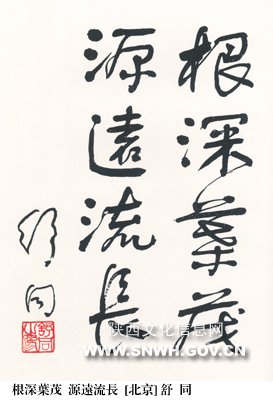 根深葉茂
源遠流長
舒同
陕西文化信息网
WWW.SNWH.GOV.CN
根深葉茂 源遠流長 [北京] 舒 同